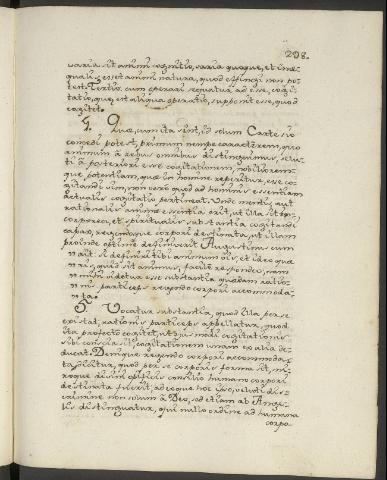 298.
varia sit animi cognitio, varia quoque, et inæ-
qualis esset animi natura, quod effingi non po-
test. Tertio. cum operari sequatur ad esse, cogi-
tatio, quæ est aliqua operatio, supponit esse, quod
cogitet.
4. Quæ, cum ita sint, id solum Cartesio
concedi potest, primum nempe caracterem, quo
animum a rebus omnibus distinguimus, velu-
ti a posteriori esse cogitationem, nobiliorem-
que potentiam, quæ in homine reperitur, esse co-
gitandi vim, non vero quod ad hominis essentiam
actualis cogitatio pertineat. Unde mentis, aut
rationalis animæ essentia erit, ut illa sit
corporea, et spiritualis substantia cogitandi
capax, regendoque corpori destinata, ut illam
proinde optime definiverit Augustinus cum
" ait: si definiri tibi animum vis, et ideo quæ-
" ris, quid sit animus, facile respondeo, nam
" mihi videtur esse substantia quædam ratio-
" nis particeps regendo corpori accommoda-
" ta.
5. Vocatur substantia, quod illa per se
existat, rationis particeps appellatur, quod
ita profecto cogitet, ut hujusmodi cogitationis
sibi conscia sit, cogitationem unam ex alia de-
ducat. Denique regendo corpori accommoda-
ta dicitur, quod per se corporis forma sit, mi-
roque divini opificis consilio humano corpori
destinata fuerit, adeoque hoc ipso, veluti dis-
crimine non solum a Deo, sed etiam ab Ange-
lis distinguatur, qui nullo ordine ad humana
corpo-